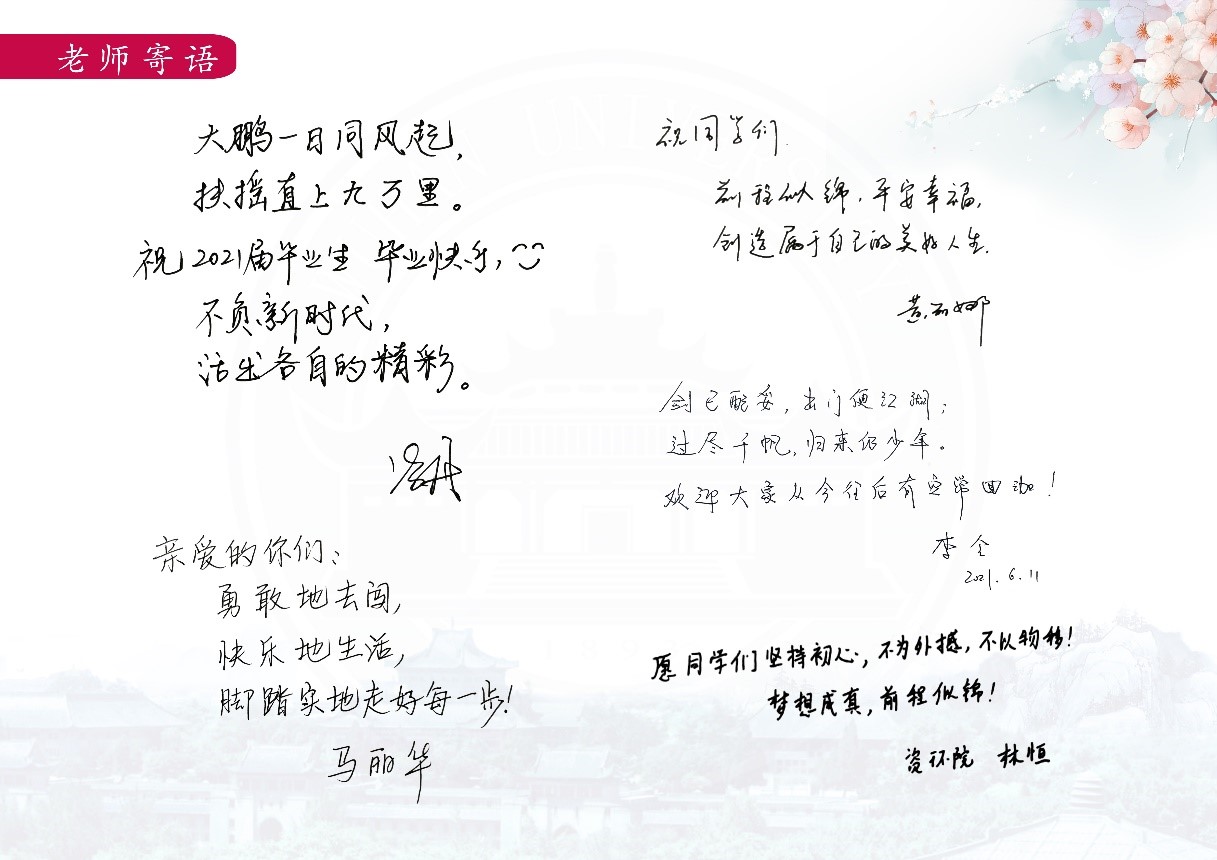 老师寄语
大鹏一日同风起,
扶摇直上九万里。
祝2021届毕业生 毕业快乐,
不负新时代,
活出各自的精彩。
亲爱的你们:
勇敢地去闯,
快乐地生活,
脚踏实地走好每一步!
马丽华
祝同学们
前程似锦.平安幸福,
创造属于自己的美好人生.
黄石娜
剑已配妥,出门便江湖;
过尽千帆,归来仍少年。
欢迎大家从今往后有空常回珈!
李全
2021.6.11
愿同学们坚持初心,不为外撼,不以物移!
梦想成真,前程似锦!
资环院 林恒